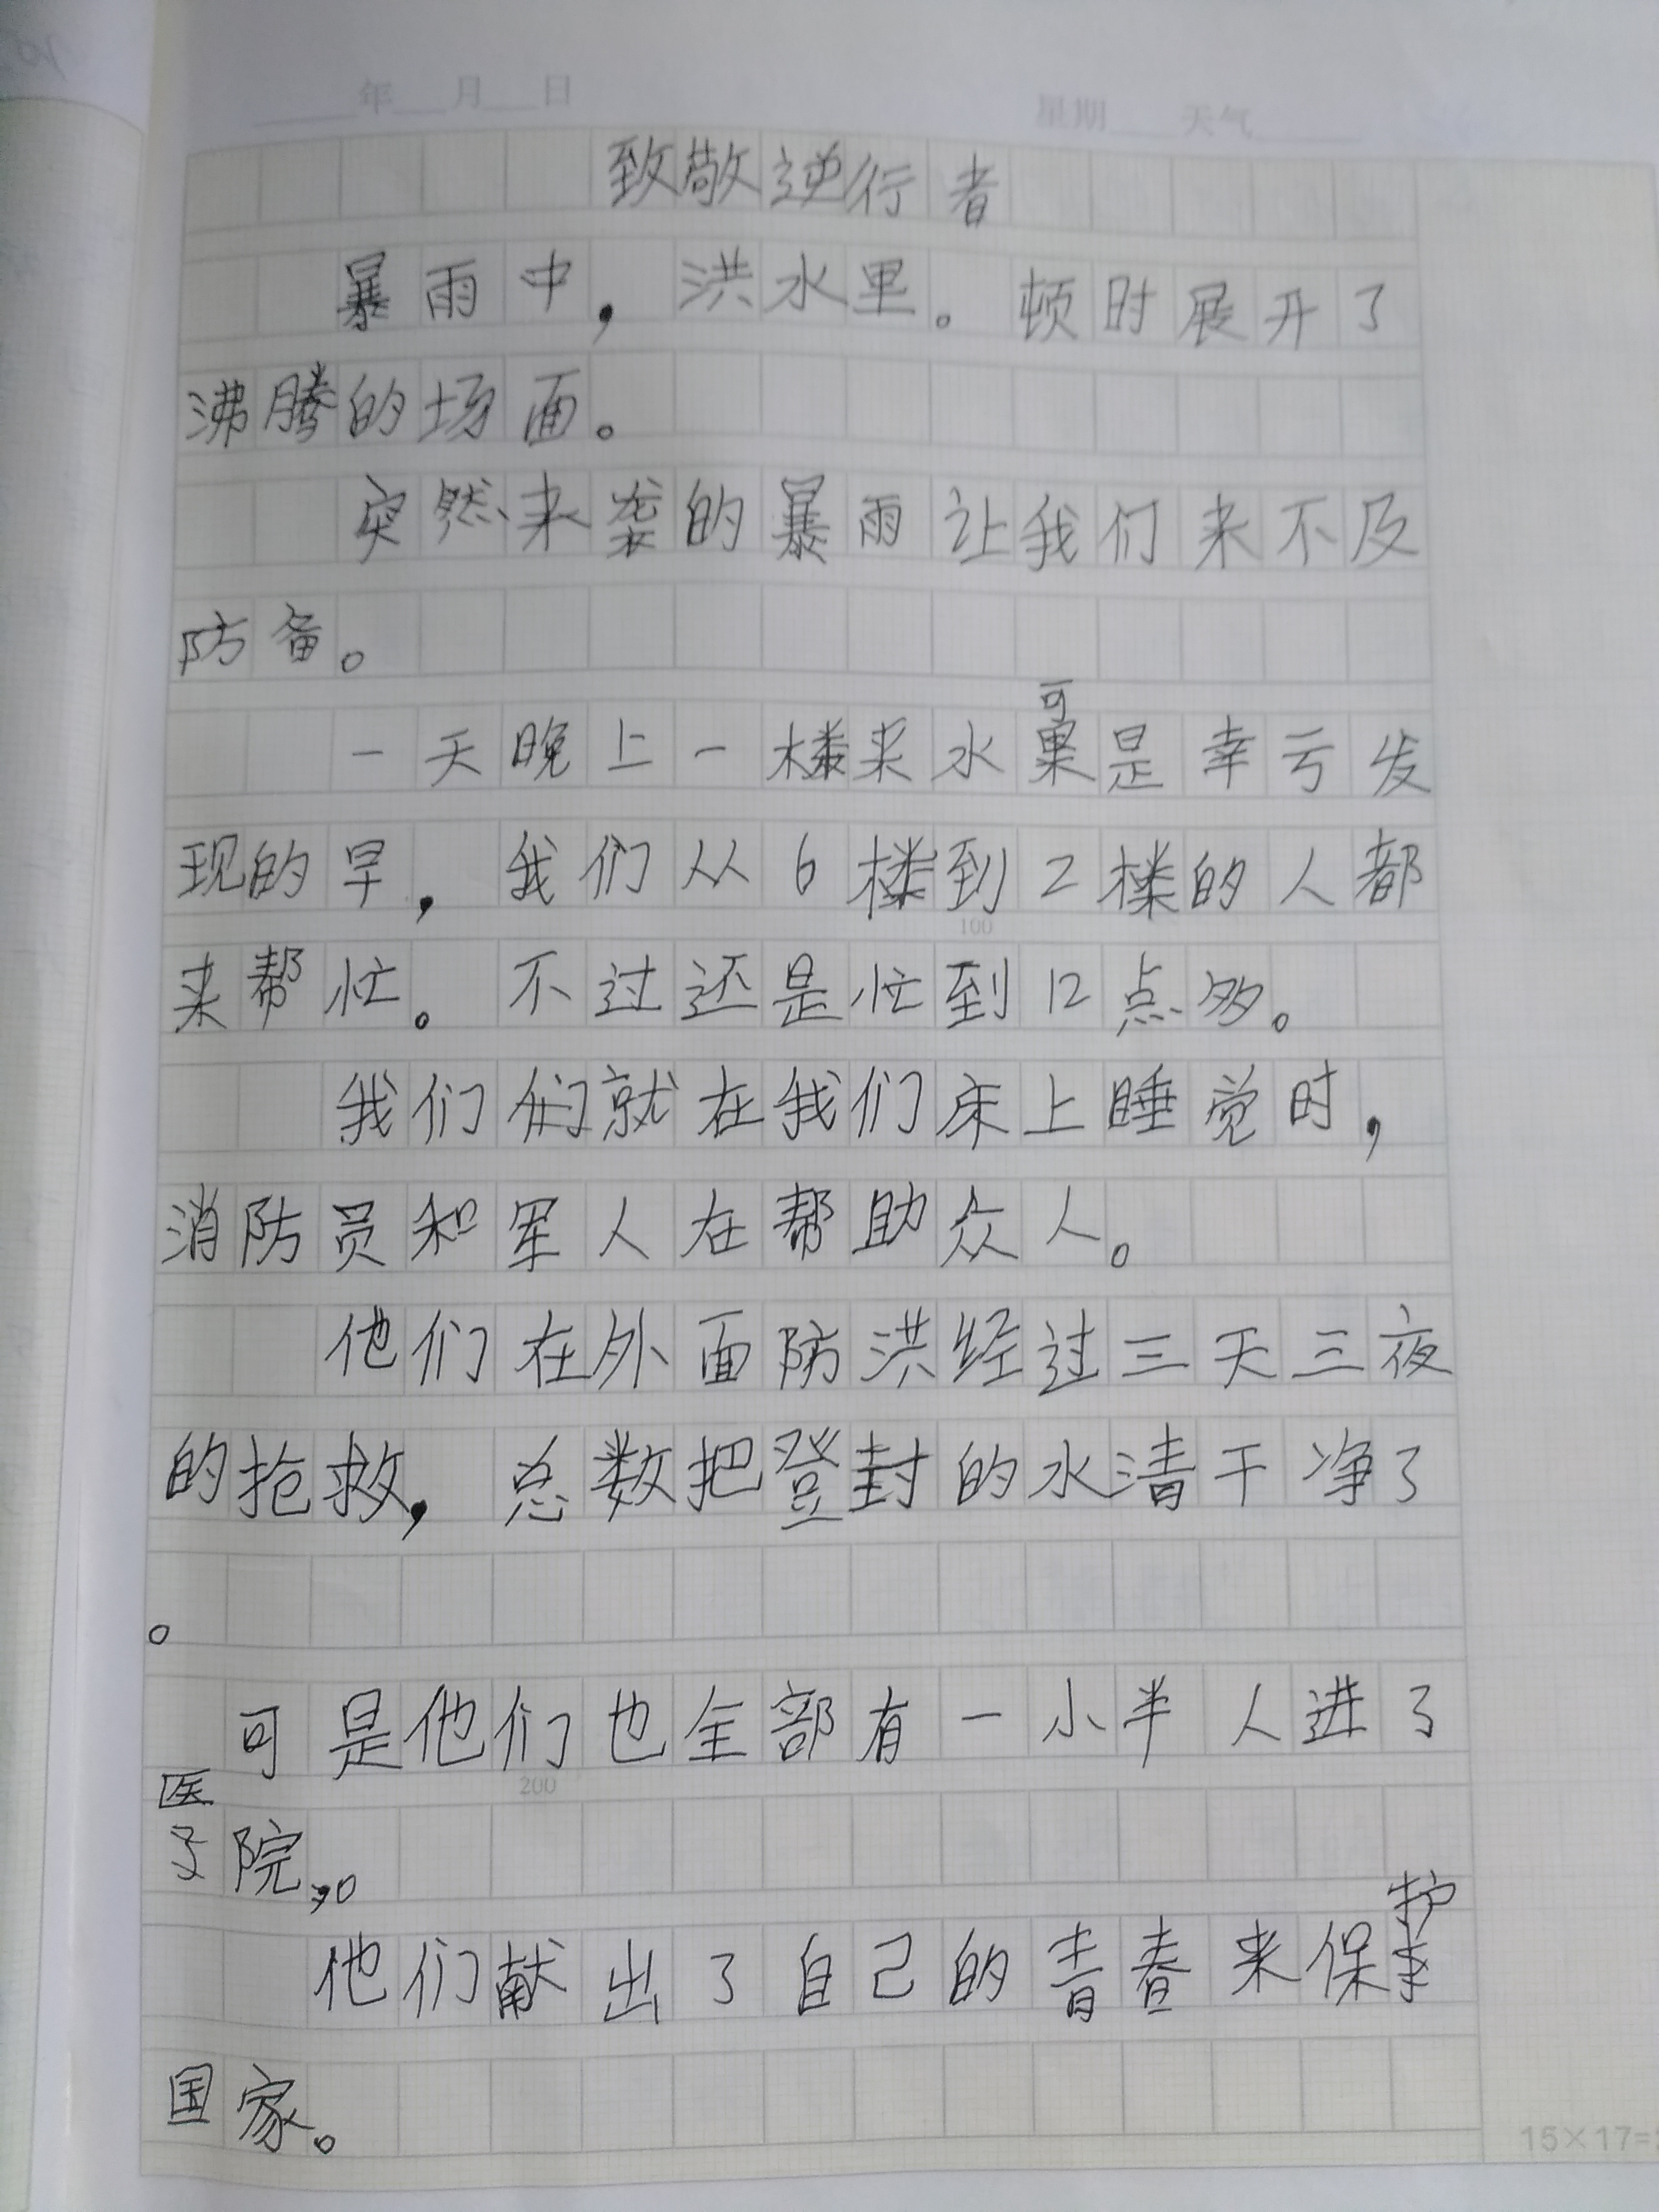 年 月 日 星期 天气
致敬逆行者
暴雨中，洪水里。顿时展开了
沸腾的场面。
突然来袭的暴雨让我们来不及
防备。
可
一天晚上一楼来水果是幸亏发
现的早，我们从6楼到2楼的人都
100
来帮忙。不过还是忙到12点多。
我们们就在我们床上睡觉时，
消防员和军人在帮助众人。
他们在外面防洪经过三天三夜
的抢救，总数把登封的水清干净了
。
可是他们也全部有一小半人进了
医
200
院，。
护
他们献出了自己的青春来保
国家。
15×17=